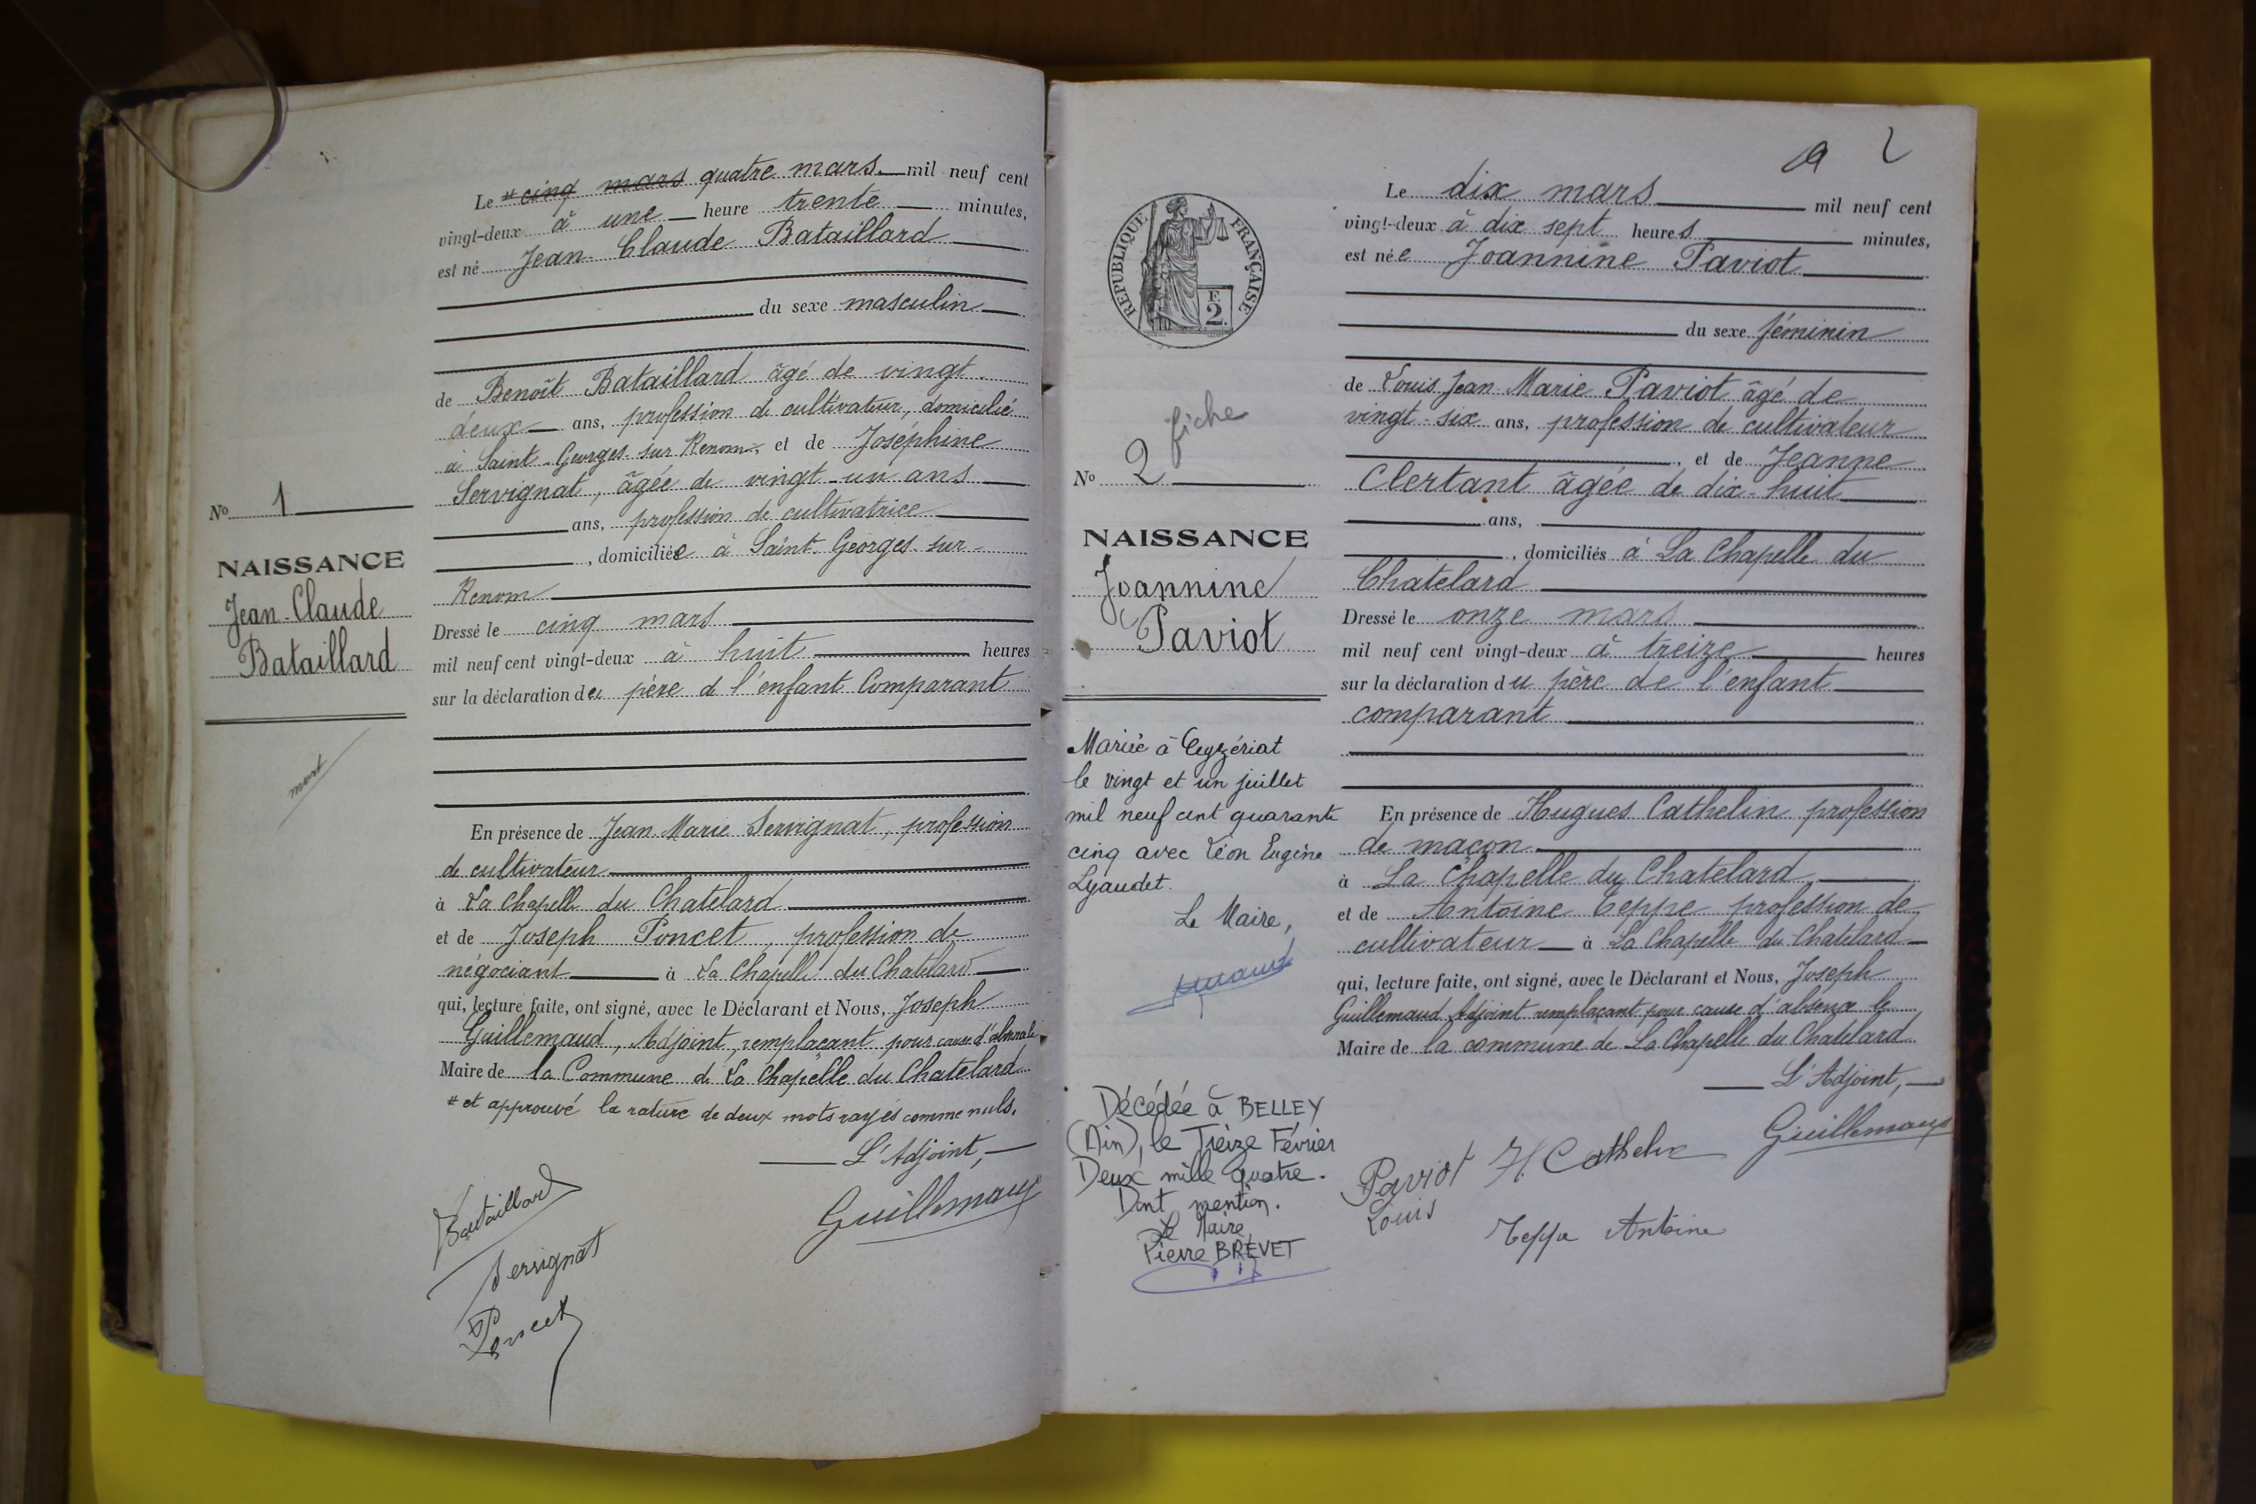 N° 1
NAISSANCE
Jean-Claude
Bataillard
mort
Le # cinq mars quatre mars mil neuf cent
vingt-deux à une heure trente minutes,
est né Jean-Claude Bataillard
du sexe masculin
de Benoît Bataillard âgé de vingt
deux ans, profession de cultivateur, domicilié
à Saint-Georges-sur-Renom, et de Joséphine
Servignat, âgée de vingt-un ans
ans, profession de cultivatrice
, domiciliée à Saint-Georges-sur-
Renom
Dressé le cinq mars
mil neuf cent vingt-deux à huit heures
sur la déclaration du père de l'enfant Comparant
En présence de Jean Marie Servignat, profession
de cultivateur
à La Chapelle du Chatelard
et de Joseph Poncet, profession de
négociant à La Chapelle du Chatelard
qui, lecture faite, ont signé, avec le Déclarant et Nous, Joseph
Guillemaud, Adjoint, remplaçant pour cause d'absence le
Maire de la Commune de La Chapelle du Chatelard
# et approuvé la rature de deux mots rayés comme nuls.
L'Adjoint,
Bataillard
Guillemaud
Servignat
Poncet
2
REPUBLIQUE FRANÇAISE
F.
2.
fiche
N° 2
NAISSANCE
Joannine
Paviot
Mariée à Ceyzériat
le vingt et un juillet
mil neuf cent quarante
cinq avec Léon Eugène
Lyaudet.
Le Maire,
Décédée à BELLEY
(Ain), le Treize Février
Deux mille quatre.
Dont mention.
Le Maire,
Pierre BREVET
Le dix mars mil neuf cent
vingt-deux à dix sept heures minutes,
est née Joannine Paviot
du sexe féminin
de Louis Jean Marie Paviot âgé de
vingt-six ans, profession de cultivateur
, et de Jeanne
Clertant âgée de dix-huit
ans,
, domiciliés à La Chapelle du
Chatelard
Dressé le onze mars
mil neuf cent vingt-deux à treize heures
sur la déclaration du père de l'enfant
comparant
En présence de Hugues Cathelin profession
de maçon
à La Chapelle du Chatelard
et de Antoine Teppe profession de
cultivateur à La Chapelle du Chatelard
qui, lecture faite, ont signé, avec le Déclarant et Nous, Joseph
Guillemaud Adjoint remplaçant pour cause d'absence le
Maire de la commune de La Chapelle du Chatelard
L'Adjoint,
Guillemaud
Paviot H Cathelin
Louis
Teppe Antoine